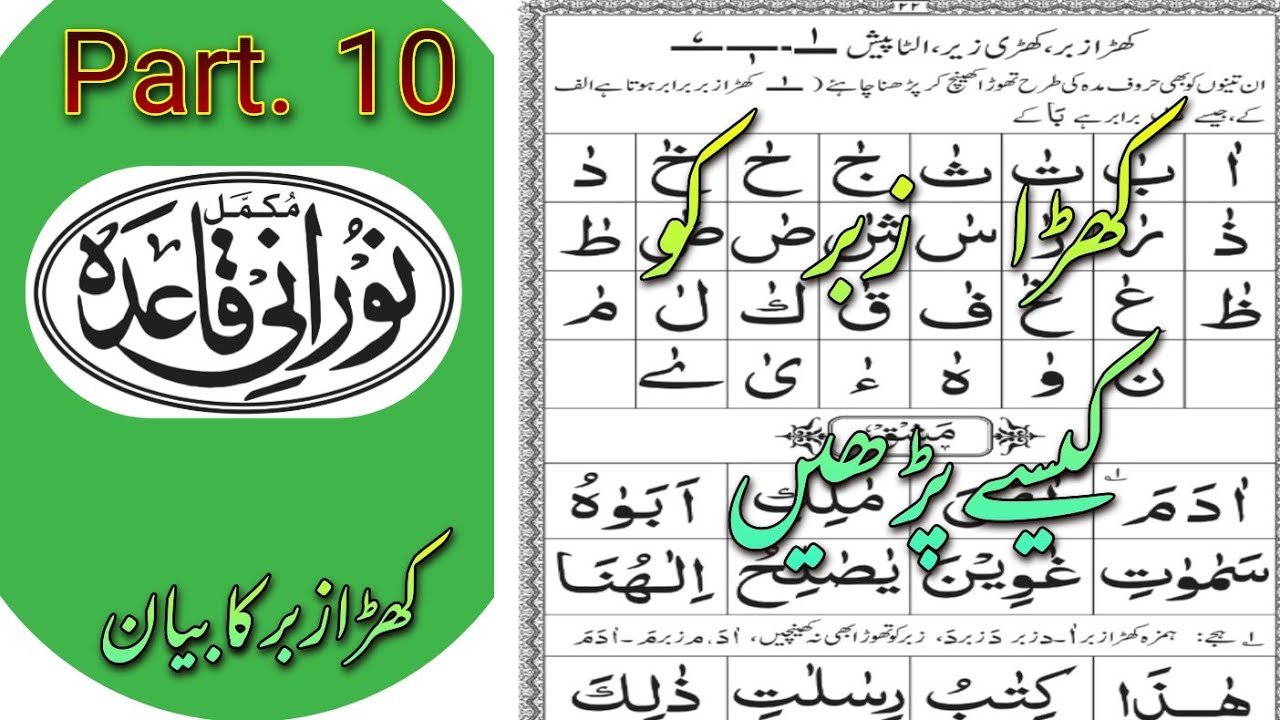 Part. 10
مکمل
نورانی قاعدہ
کھڑا زبر کا بیان
۲۲
کھڑا زبر، کھڑی زیر، الٹا پیش
ان تینوں کو بھی حروف مدہ کی طرح تھوڑا کھینچ کر پڑھنا چاہئے ( کھڑا زبر برابر ہوتا ہے الف
کے، جیسے برابر ہے بَا کے
کھڑا زبر کو
کیسے پڑھیں
اٰ بٰ تٰ ثٰ جٰ حٰ خٰ دٰ
ذٰ رٰ زٰ سٰ شٰ صٰ ضٰ طٰ
ظٰ عٰ غٰ فٰ قٰ كٰ لٰ مٰ
نٰ وٰ هٰ ءٰ یٰ ےٰ
مشق
اٰدَمَ مٰلِكِ اَبَوٰهُ
سَمٰوٰتِ غٰوِيْنَ يٰصٰلِحُ اِلٰهُنَا
۱ ہجے: ہمزہ کھڑا زبر اٰ - دزبر دَ زبر دَ، زبر کو تھوڑا بھی نہ کھینچیں، اٰدَ، م زبر مَ - اٰدَمَ
هٰذَا كِتٰبُ رِسٰلٰتِ ذٰلِكَ